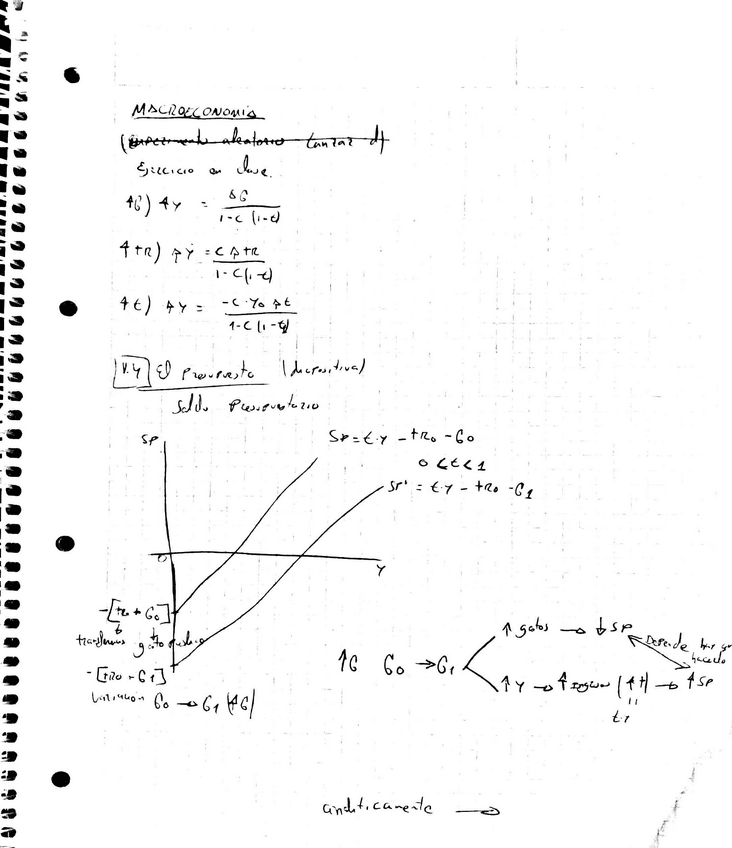 MACROECONOMIA
(experimento aleatorio lanzar d)
Ejercicio en clase.
↑G) ΔY = ΔG / 1-c(1-t)
↑TR) ΔY = c ΔTR / 1-c(1-t)
↑t) ΔY = -c·Y₀ Δt / 1-c(1-t)
V.4 El presupuesto (diapositiva)
Saldo Presupuestario
SP
SP = t·Y - TR₀ - G₀
0 < t < 1
SP' = t·Y - TR₀ - G₁
0
Y
-[TR₀ + G₀]
transferencias gasto público
-[TR₀ - G₁]
Variación G₀ → G₁ (↑G)
↑G G₀ → G₁
↑ gatos → ↓ SP
Depende hay que hacerlo
↑ Y → ↑ Ingresos (↑T) → ↑ SP
"
t.Y
analíticamente →